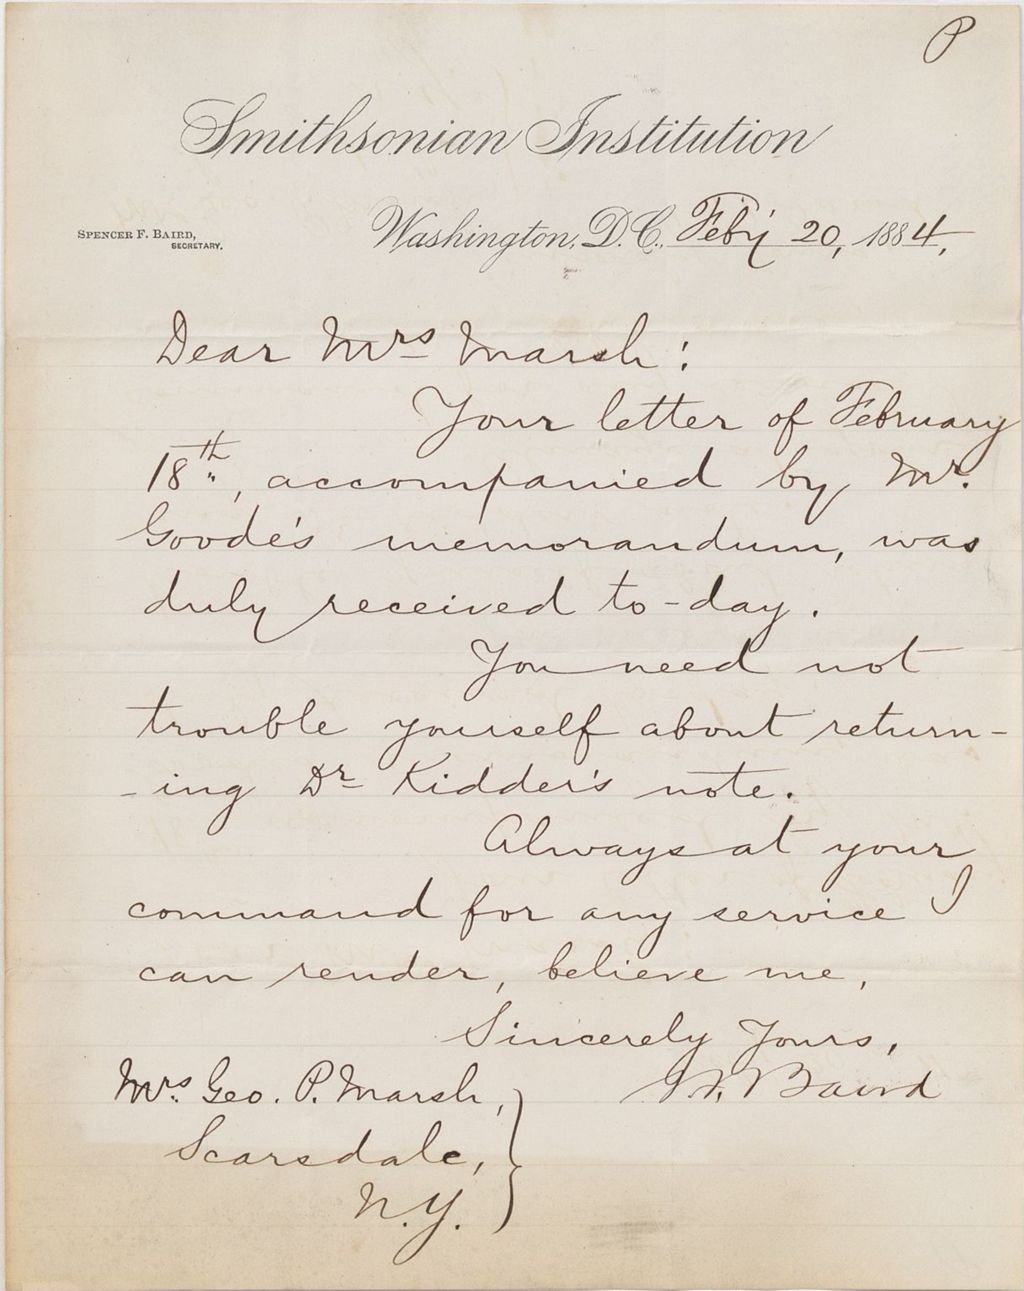 P
Smithsonian Institution
SPENCER F. BAIRD,
SECRETARY.
Washington, D.C., Feb'y 20, 1884,
Dear Mrs Marsh:
Your letter of February
18th, accompanied by Mr.
Goode's memorandum, was
duly received to-day.
You need not
trouble yourself about return-
-ing Dr Kidder's note.
Always at your
command for any service I
can render, believe me,
Sincerely Yours,
Baird
Mrs. Geo. P. Marsh,
Scarsdale,
N.Y.